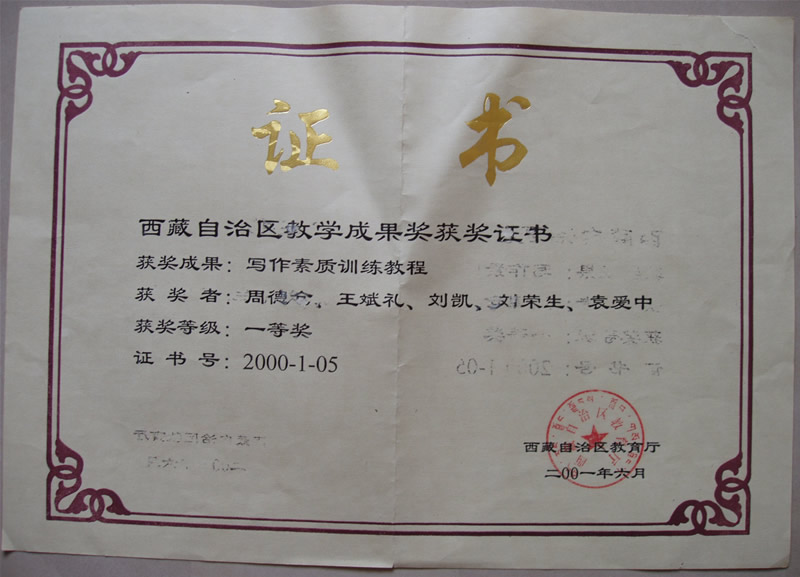 证书
西藏自治区教学成果奖获奖证书
获奖成果：写作素质训练教程
获奖者：周德仓、王斌礼、刘凯、刘荣生、袁爱中
获奖等级：一等奖
证书号：2000-1-05
西藏自治区教育厅
西藏自治区教育厅
二00一年六月